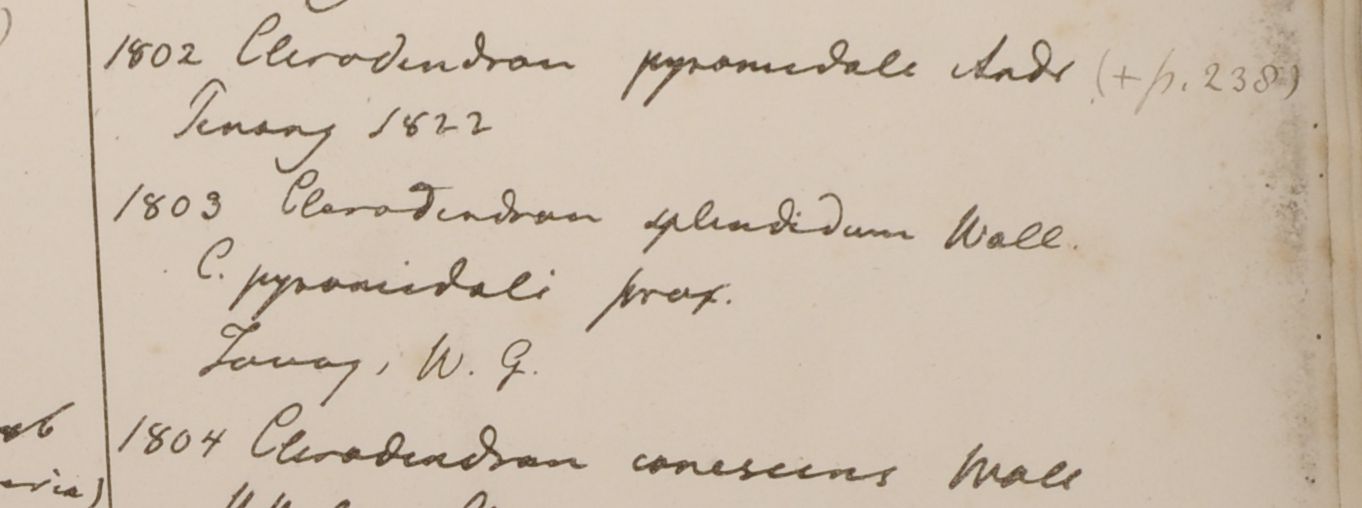 1802 Clerodendron pyramidale Andr (+ p. 238)
Penang 1822
1803 Clerodendron splendidum Wall.
C. pyramidali prox.
Tavoy, W. G.
1804 Clerodendron canescens Wall